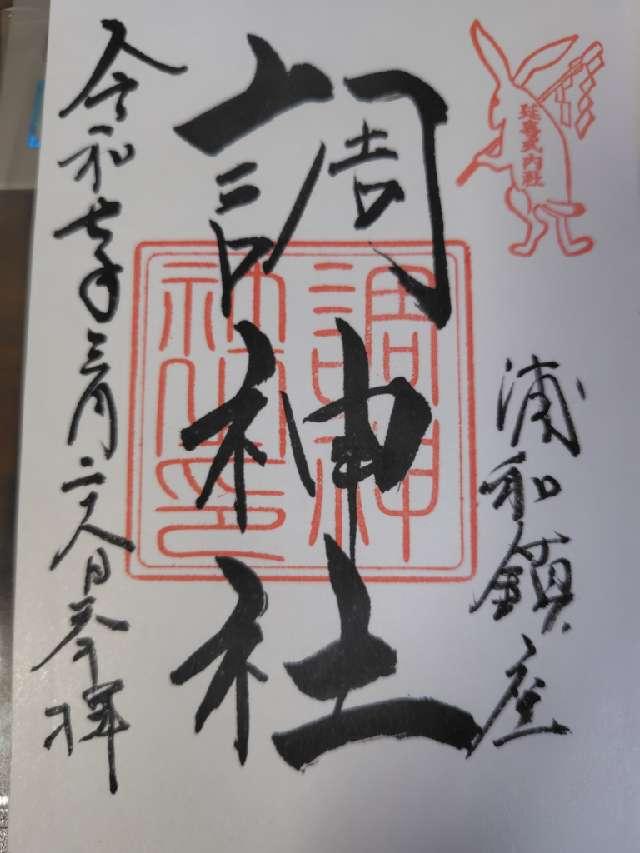 延喜式内社
浦和鎮座
調神社
調神
社之印
令和七年三月二十八日奉拝